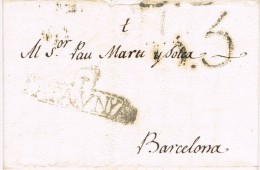 t
Al S.or Pau Maru y Solea
Barcelona